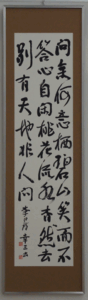 问余何意栖碧山笑而不
答心自闲桃花流水杳然去
别有天地非人间